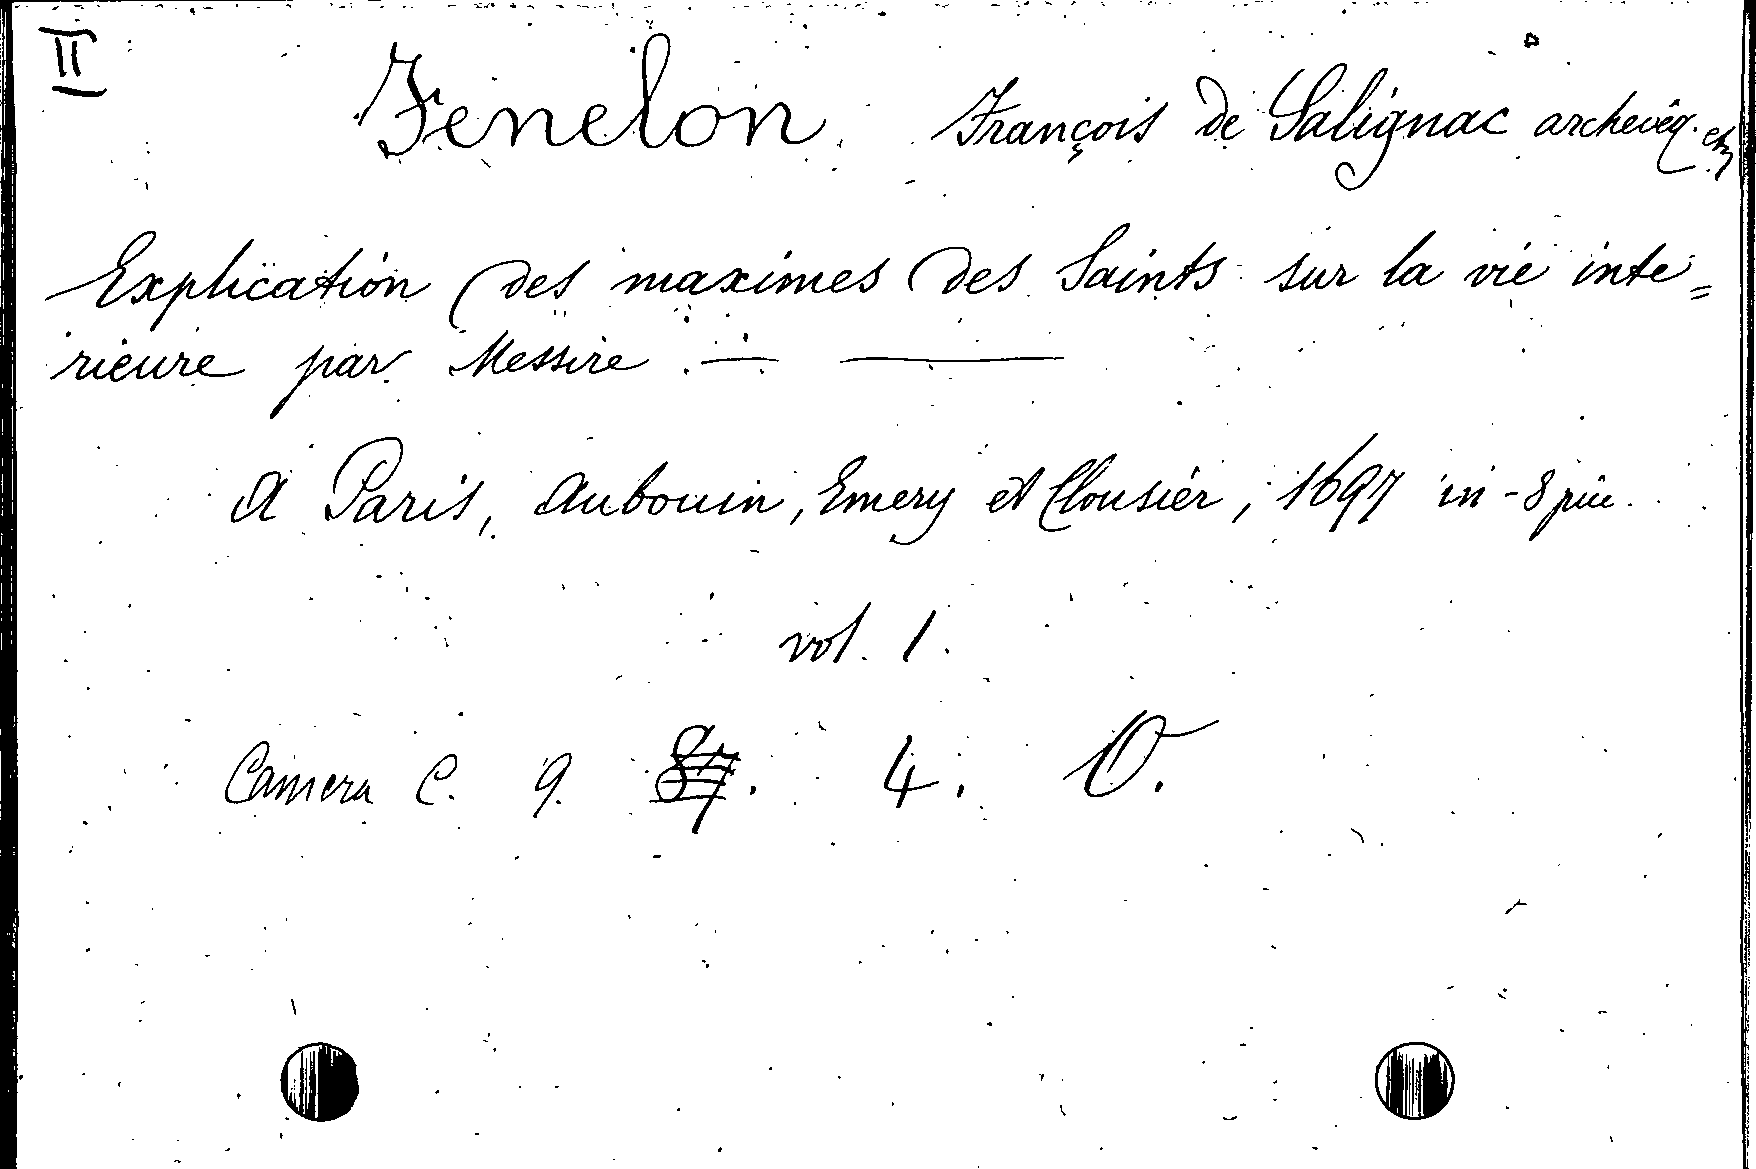 II
Fenelon François de Salignac archevêq. etc
Explication des maximes des Saints sur la vie inte=
rieure par Messire — ——
A Paris, Aubouin, Emery et Clousier, 1697 in-8 picc.
vol. 1.
Camera C. 9. 4. O.